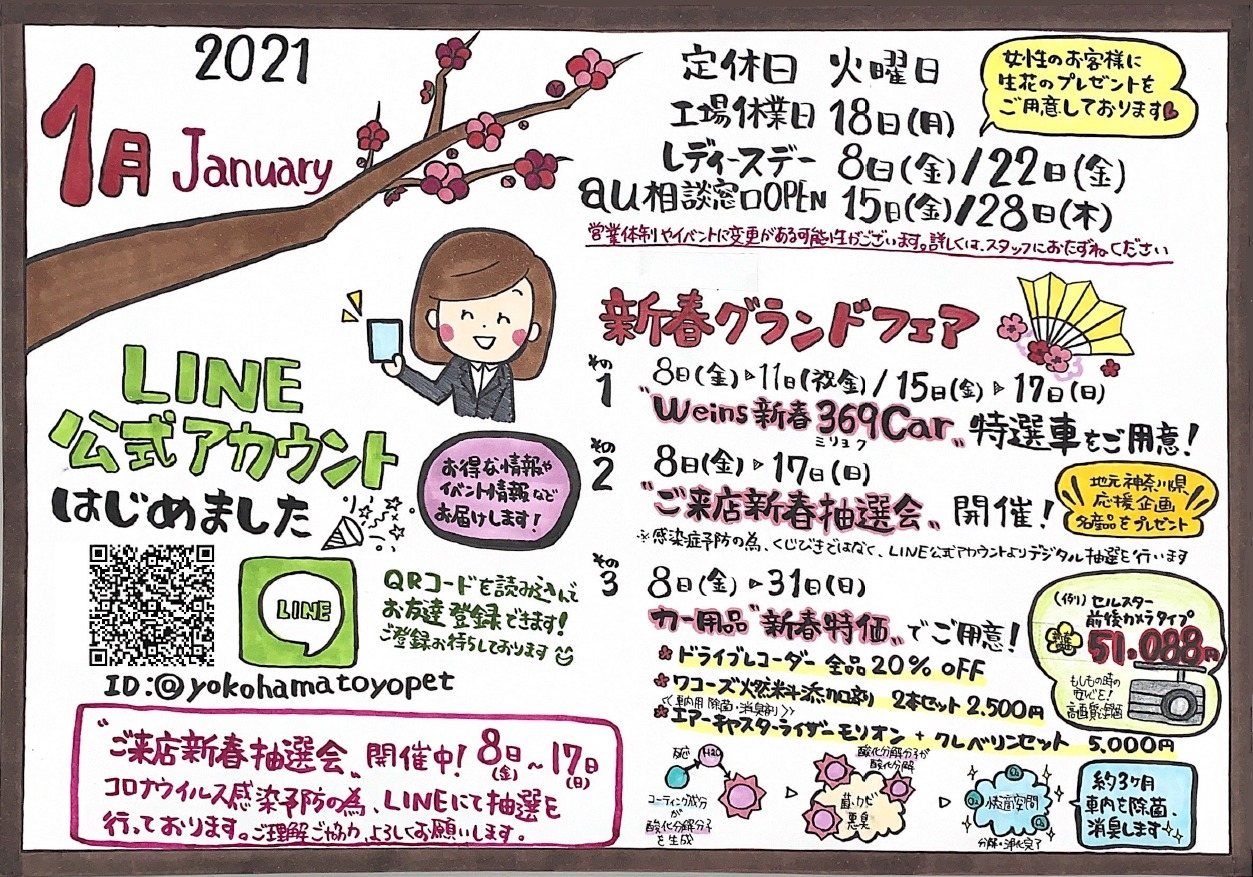 2021
1月 January
定休日 火曜日
工場休業日 18日(月)
レディースデー 8日(金)/22日(金)
au相談窓口OPEN 15日(金)/28日(木)
営業体制やイベントに変更がある可能性がございます。詳しくは、スタッフにおたずねください
女性のお客様に
生花のプレゼントを
ご用意しております
LINE
公式アカウント
はじめました
お得な情報や
イベント情報など
お届けします!
LINE
QRコードを読み込んで
お友達登録できます!
ご登録お待ちしております
ID:@yokohamatoyopet
"ご来店新春抽選会"開催中! 8日(金)~17日(日)
コロナウイルス感染予防の為、LINEにて抽選を
行っております。ご理解ご協力、よろしくお願いします。
新春グランドフェア
その1
8日(金)▷11日(祝金)/15日(金)▷17日(日)
"Weins新春369Car"特選車をご用意!
ミリョク
その2
8日(金)▷17日(日)
"ご来店新春抽選会"開催!
地元神奈川県
応援企画
名産品をプレゼント
※感染症予防の為、くじびきではなく、LINE公式アカウントよりデジタル抽選を行います
その3
8日(金)▷31日(日)
カー用品"新春特価"でご用意!
ドライブレコーダー 全品20% OFF
ワコーズ燃料添加剤 2本セット 2,500円
<<車内用 除菌・消臭剤>>
エアーキャスターライザーモリオン+クレベリンセット 5,000円
(例) セルスター
前後カメラタイプ
51,088円
もしもの時の
安心を!
高画質録画
反応
H2O
コーティング成分
が
酸化分解分子
を生成
酸化分解分子が
酸化分解
菌・カビ
悪臭
O2
O2
O2
快適空間
分解・浄化完了
約3ヶ月
車内を除菌、
消臭します